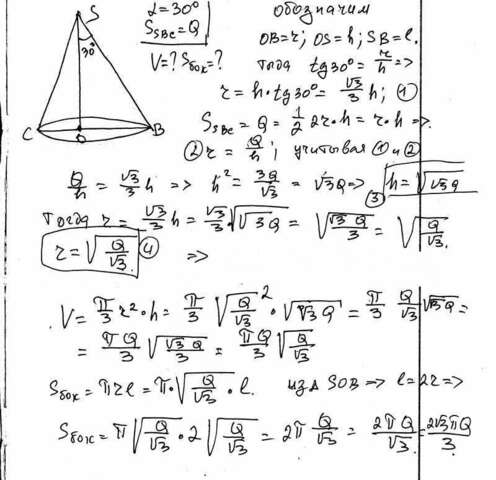 S
30°
C
O
B
α = 30°
S_SBC = Q
V = ? S_бок = ?
обозначим
OB = r; OS = h; SB = l.
тогда tg30° = r/h =>
r = h·tg30° = √3/3 h; ①
S_SBC = Q = 1/2 2r·h = r·h =>.
② r = Q/h; учитывая ① и ②
Q/h = √3/3 h => h² = 3Q/√3 = √3Q => ③ h = √(√3Q)
тогда r = √3/3 h = √3/3·√(√3Q) = √(√3Q/3) = √(Q/√3).
r = √(Q/√3). ④ =>
V = π/3 r²·h = π/3 √(Q/√3)²·√(√3Q) = π/3 Q/√3 √(√3Q) =
= πQ/3 √(√3Q/3) = πQ/3 √(Q/√3)
S_бок = πrl = π·√(Q/√3)·l. из Δ SOB => l = 2r =>
S_бок = π√(Q/√3)·2√(Q/√3) = 2π Q/√3 = 2πQ/√3 = 2√3πQ/3